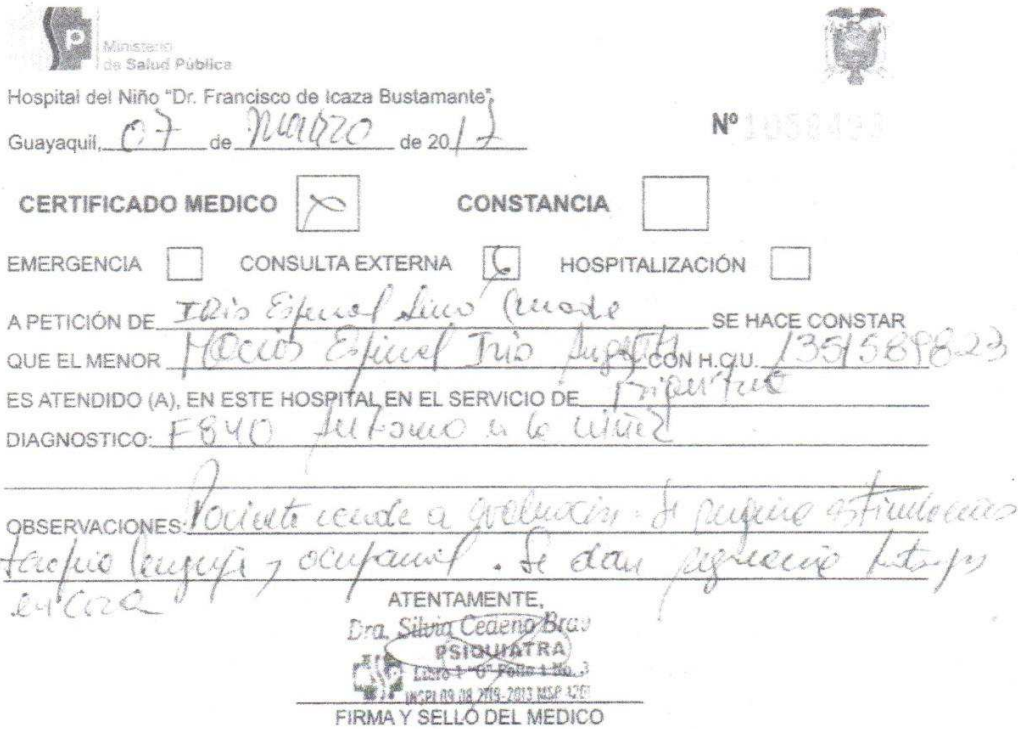 Ministerio
de Salud Pública
Hospital del Niño "Dr. Francisco de Icaza Bustamante",
Guayaquil, 07 de Marzo de 2017
Nº 1058493
CERTIFICADO MEDICO CONSTANCIA
EMERGENCIA CONSULTA EXTERNA HOSPITALIZACIÓN
A PETICIÓN DE Iris Espinal SE HACE CONSTAR
QUE EL MENOR Macias Espinal Iris CON H.C.U. 1351589823
ES ATENDIDO (A), EN ESTE HOSPITAL EN EL SERVICIO DE
DIAGNOSTICO: F840 Autismo en la niñez
OBSERVACIONES: Paciente acude a evaluación. Se sugiere
terapia lenguaje y ocupacional. Se dan
en casa
ATENTAMENTE,
Dra. Silvia Cedeño Bravo
PSIQUIATRA
Libro 1 "U" Folio 1 No. 3
FIRMA Y SELLO DEL MEDICO